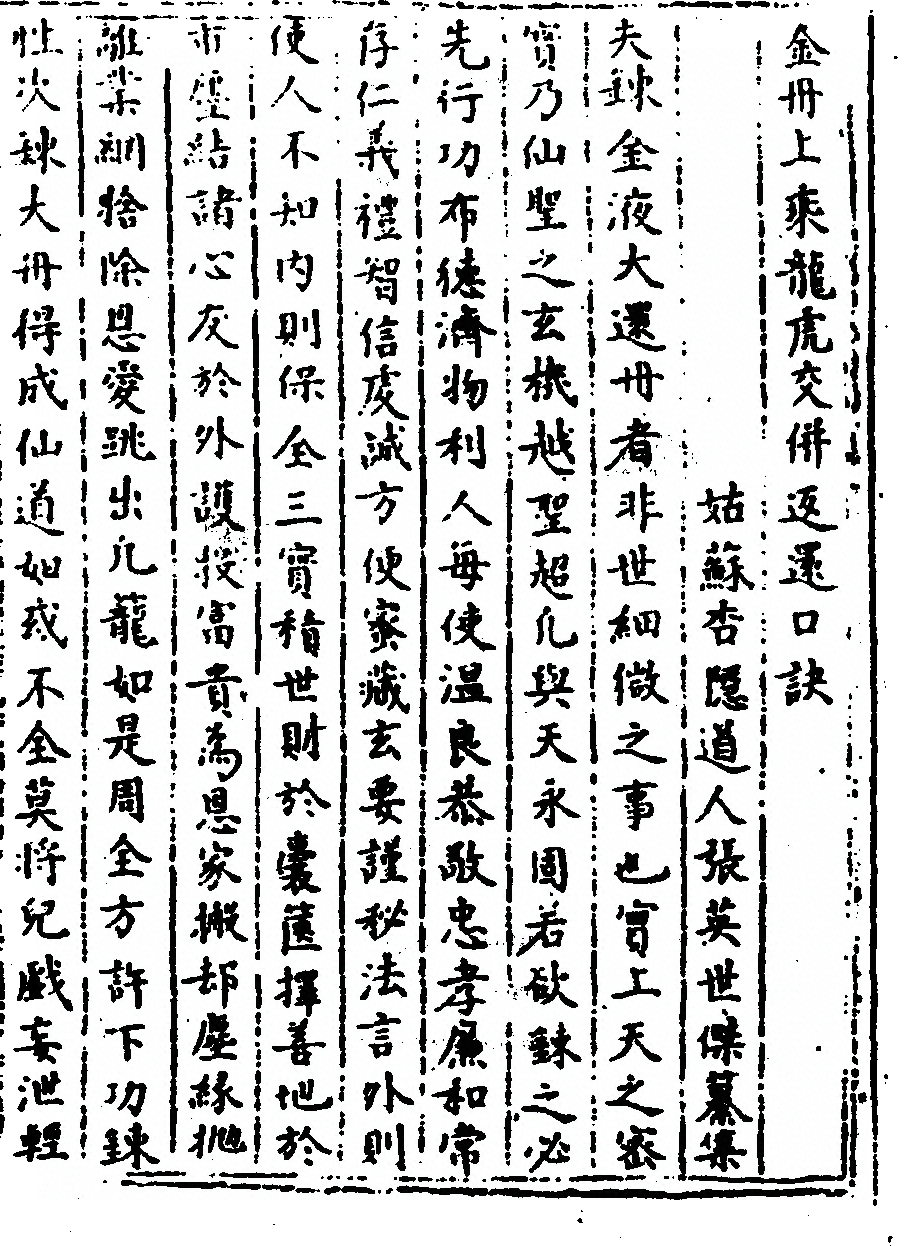 金丹上乘龍虎交併返還口訣
姑蘇杏隱道人張英世傑纂集
夫鍊金液大還丹者非世細微之事也實上天之密
寶乃仙聖之玄機越聖超凡與天永固若欲鍊之必
先行功布德濟物利人每使溫良恭敬忠孝廉和常
存仁義禮智信處誠方便密藏玄要謹秘法言外則
使人不知內則保全三寶積世財於囊篋擇善地於
市廛結諸心友於外護投富貴為恩家搬却塵緣拋
離業網捨除恩愛跳出凡籠如是周全方許下功鍊
性次鍊大丹得成仙道如或不全莫將兒戲妄泄輕